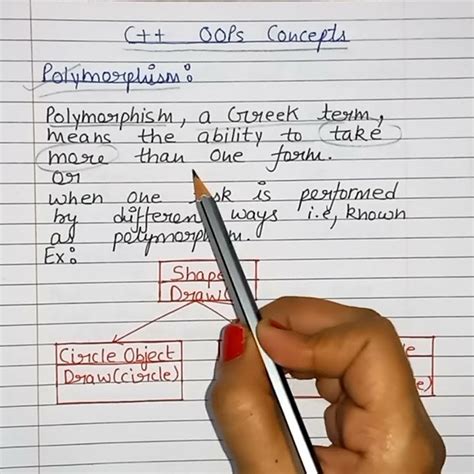 C++ OOPs Concepts
Polymorphism:
Polymorphism, a Greek term,
means the ability to take
more than one form.
or
when one task is performed
by different ways i.e, known
as polymorphism.
Ex:
Shape
Draw()
Circle Object
Draw(circle)